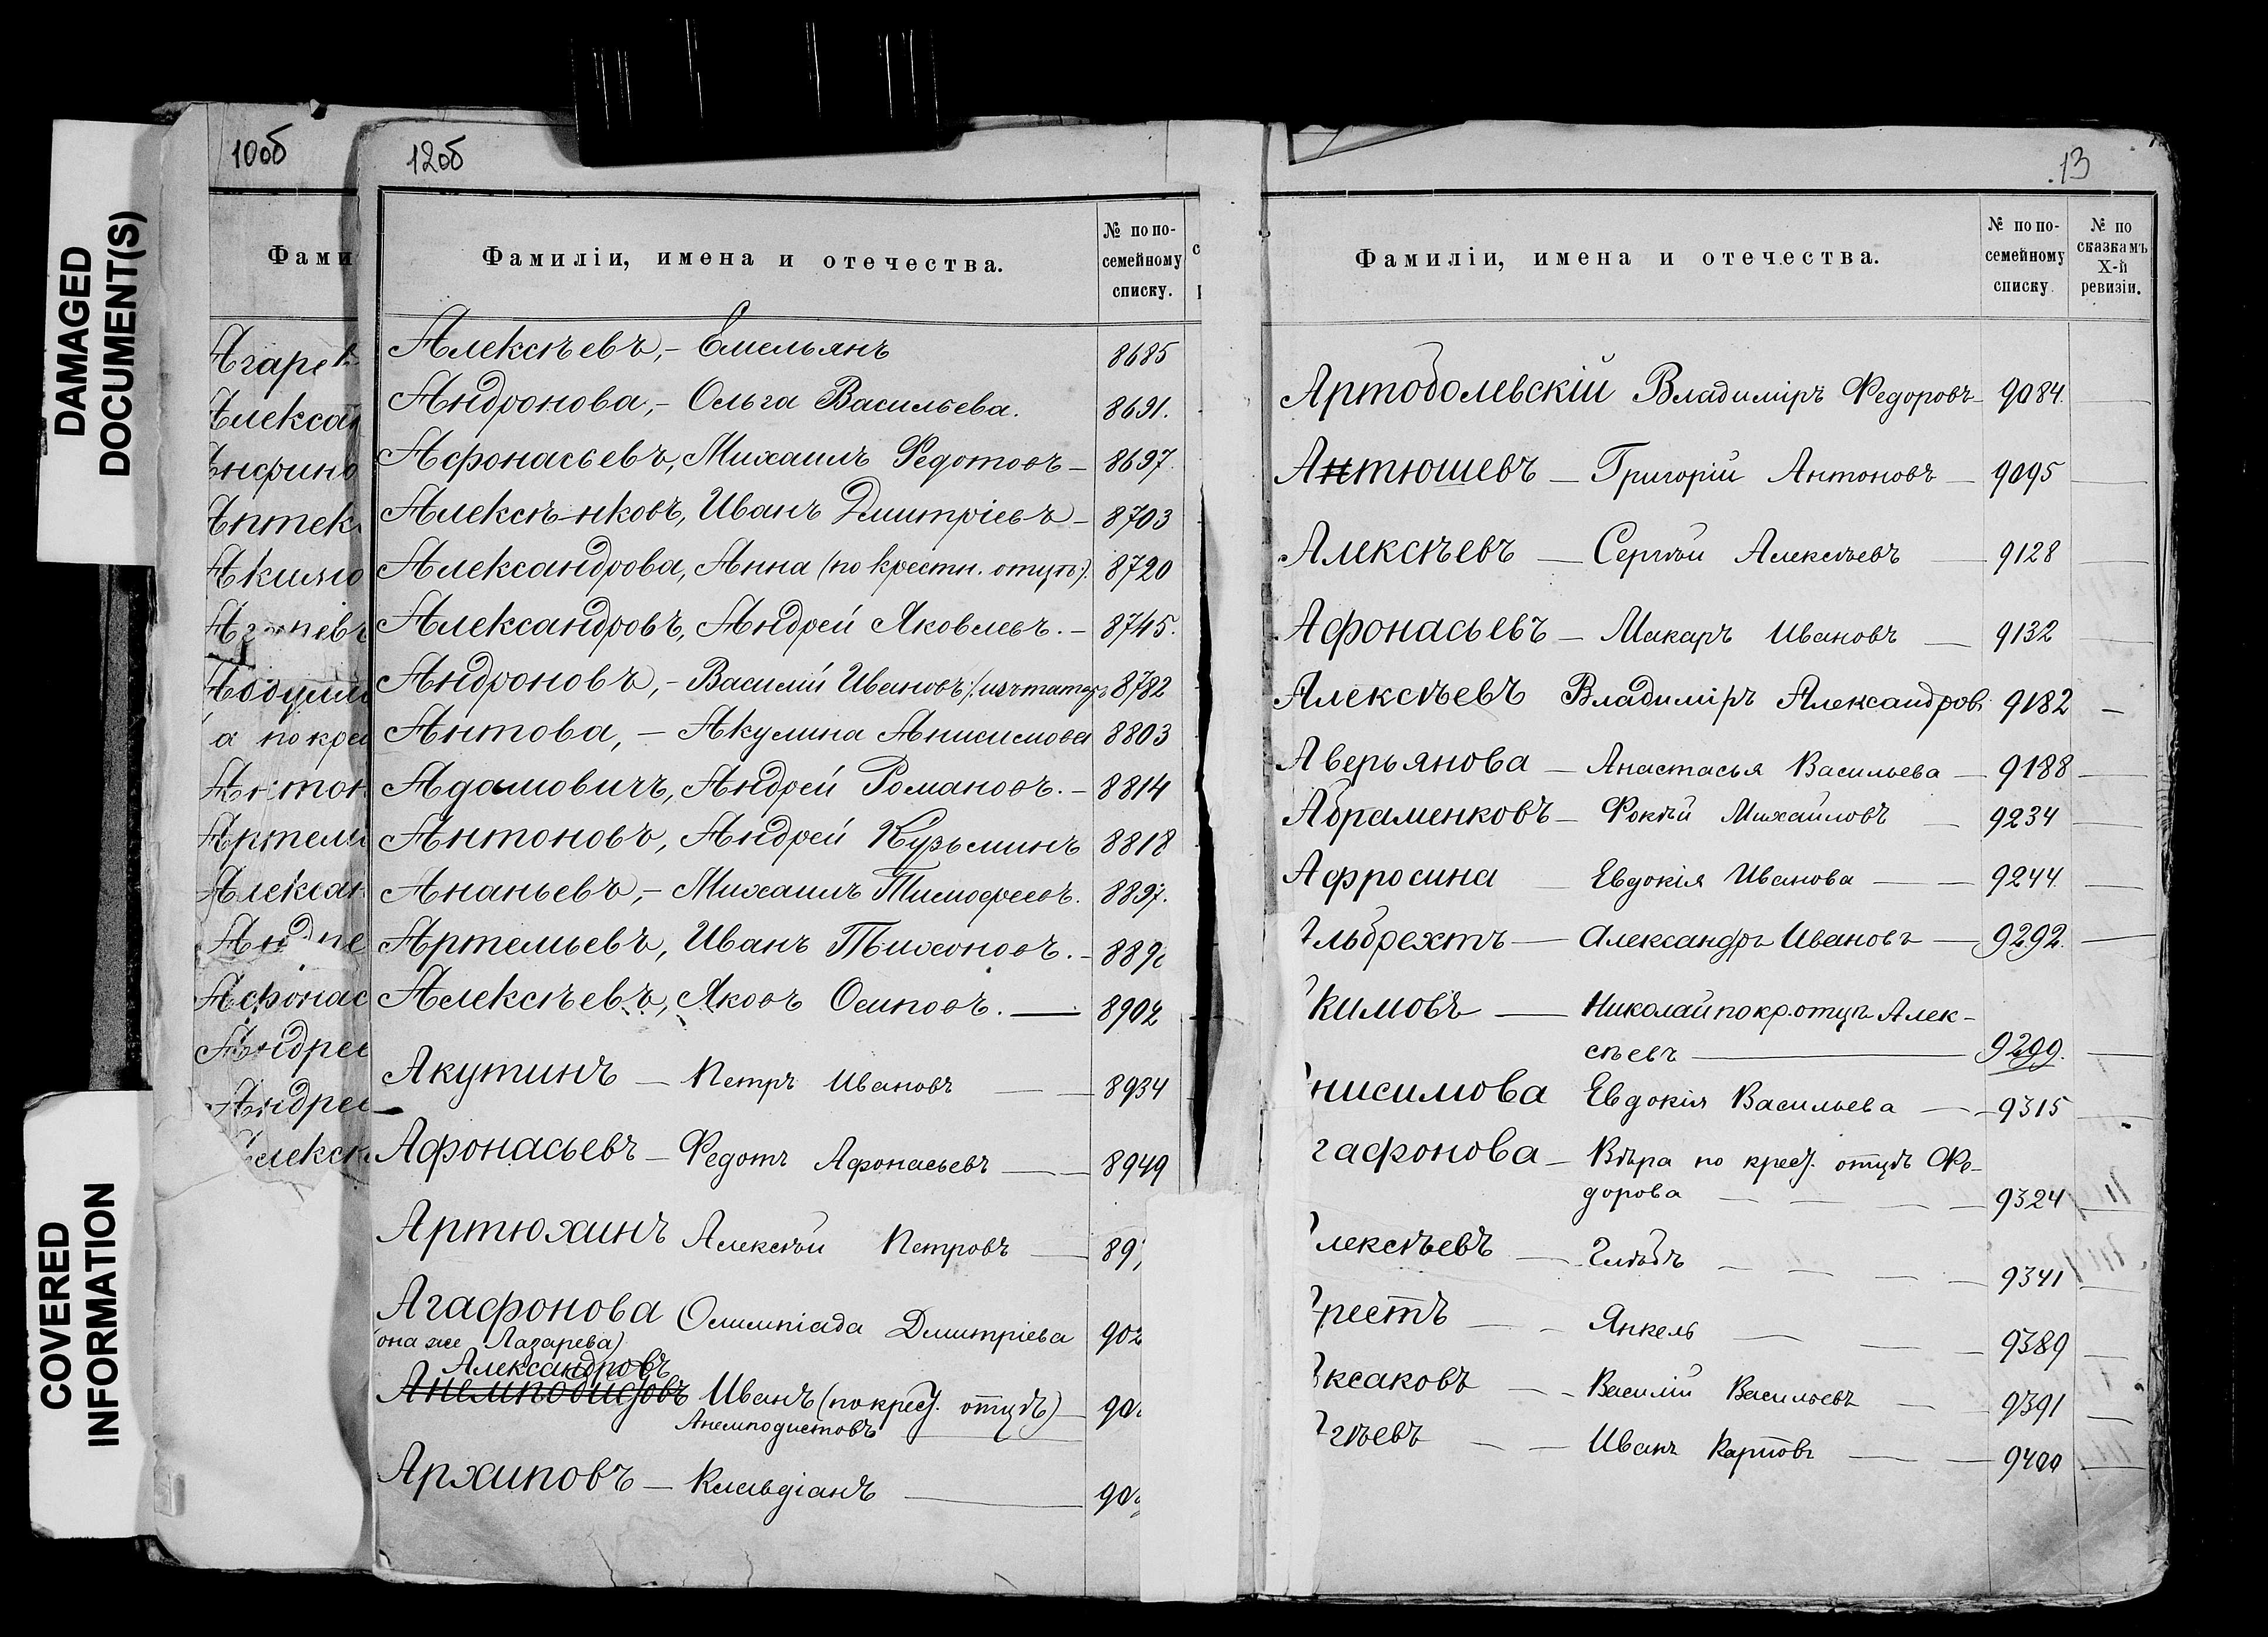 DAMAGED
DOCUMENT(S)
COVERED
INFORMATION
10об
Фами
Агарев
Алексан
Аптек
Акимо
а по кре
Антон
Артем
Алексан
Афонас
Андрее
Андрее
лексѣ
12об
Фамиліи, имена и отечества.
№ по по-
семейному
списку.
Алексѣевъ,- Емельянъ 8685
Андронова,- Ольга Васильева. 8691.
Афонасьевъ, Михаилъ Федотовъ - 8697.
Алексѣнковъ, Иванъ Дмитріевъ - 8703
Александрова, Анна (по крестн. отцу). 8720
Александровъ, Андрей Яковлевъ. - 8745.
Андроновъ,- Василій Ивановъ (изъ татаръ 8782
Антова, - Акулина Анисимова 8803
Адамовичъ, Андрей Романовъ. - 8814
Антоновъ, Андрей Кузьминъ 8818
Ананьевъ,- Михаилъ Тимофеевъ. 8897.
Артемьевъ, Иванъ Тихоновъ. - 889
Алексѣевъ, Яковъ Осиповъ. — 8902
Акутинъ - Петръ Ивановъ — 8934
Афонасьевъ - Федотъ Афонасьевъ — 8949
Артюхинъ Алексѣй Петровъ — 89
Агафонова Олимпіада Дмитріева 902
(она же Лазарева)
Александровъ
Анемподистовъ Иванъ (по крест. отцу) — 90
Анемподистовъ
Архиповъ - Клавдіанъ — 90
13
Фамиліи, имена и отечества.
№ по по-
семейному
списку
№ по
сказкамъ
X-й
ревизіи.
Артоболевскій Владиміръ Федоровъ - 9084.
Антюшевъ - Григорій Антоновъ - 9095
Алексѣевъ - Сергѣй Алексѣевъ — 9128
Афонасьевъ - Макаръ Ивановъ — 9132
Алексѣевъ Владиміръ Александров. 9182 -
Аверьянова - Анастасья Васильева - 9188 -
Абраменковъ - Фокѣй Михайловъ — 9234
Афросина Евдокія Иванова — 9244
льбрехтъ — Александръ Ивановъ — 9292.
кимовъ — Николай по кр. отцу Алек-
сѣевъ — 9299.
нисимова Евдокія Васильева — 9315
гафонова - Вѣра по крест. отцу Фе-
дорова — 9324
лексѣевъ - Глѣбъ — 9341
рестъ — Янкель — 9389
ксаковъ — Василій Васильевъ — 9391
гѣевъ — Иванъ Карповъ — 9400